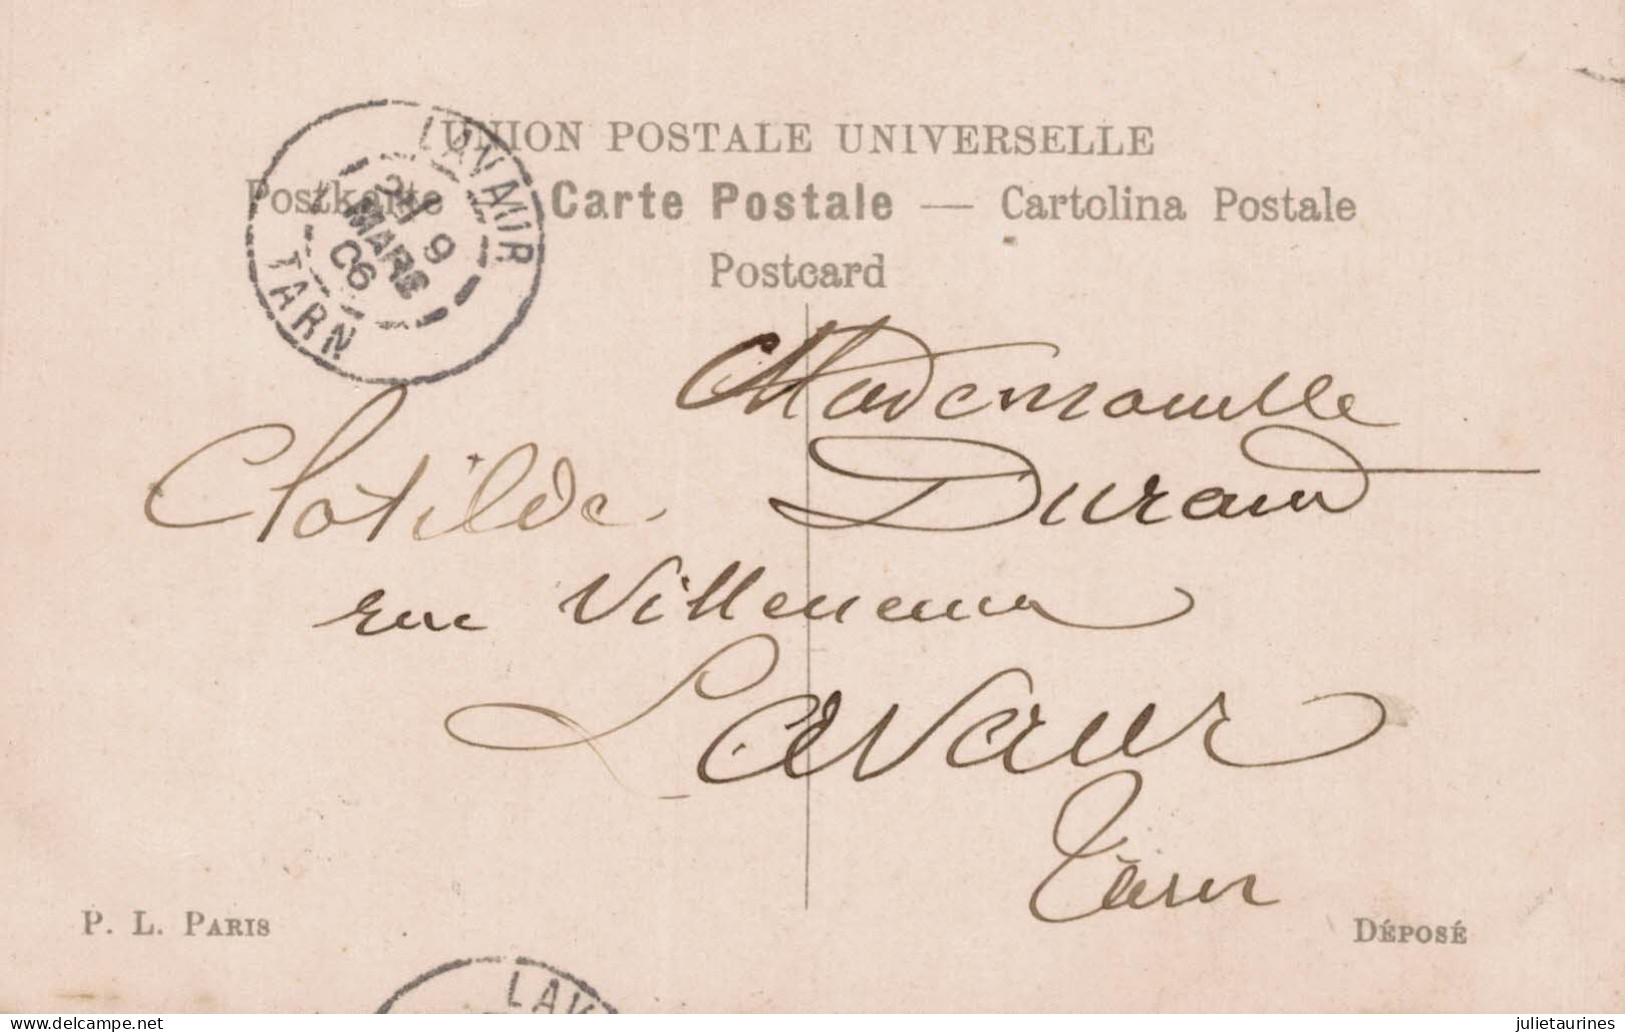 UNION POSTALE UNIVERSELLE
Postkarte — Carte Postale — Cartolina Postale
Postcard
LAVAUR
9
MARS
06
TARN
Mademoiselle
Clotilde Durand
rue Villeneuve
Lavaur
Tarn
P. L. PARIS
DÉPOSÉ
LAV
delcampe.net
julietaurines